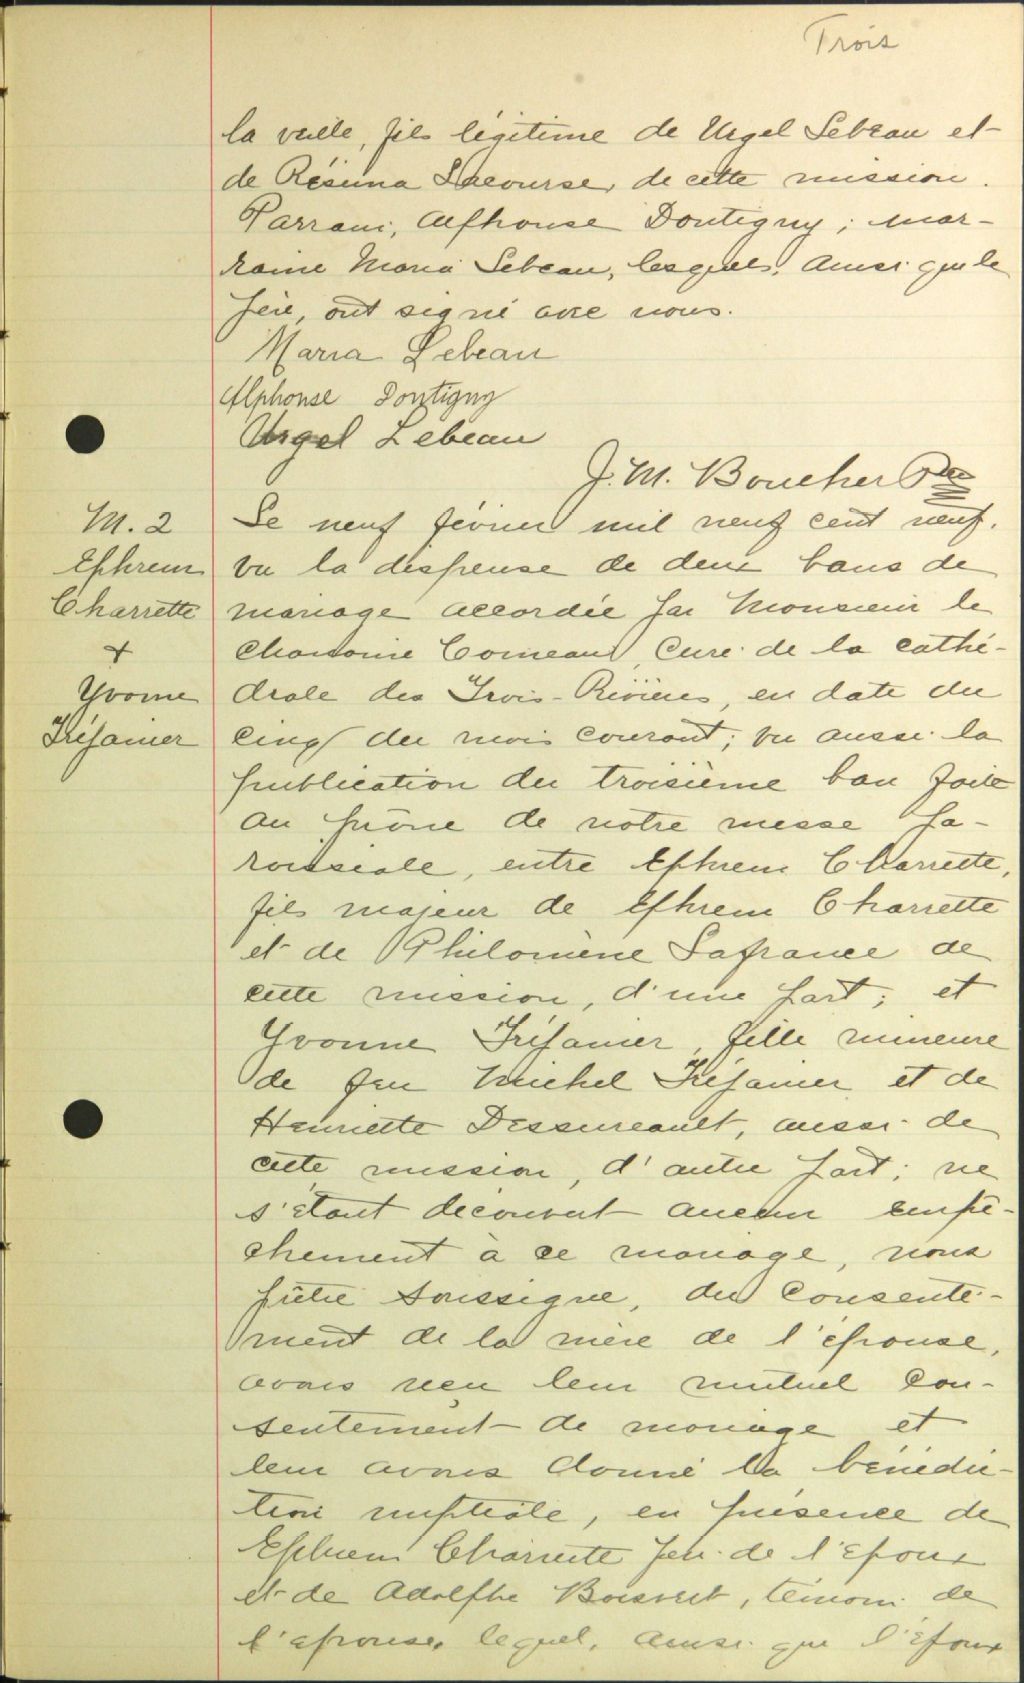 Trois
la veille, fils légitime de Urgel Lebeau et
de Résima Lacourse, de cette mission.
Parrain, Alphonse Dontigny; mar-
raine Maria Lebeau, lesquels, ainsi que le
père, ont signé avec nous.
Maria Lebeau
Alphonse Dontigny
Urgel Lebeau
J. M. Boucher Ptre
M. 2
Ephrem
Charrette
+
Yvonne
Tréfanier
Le neuf février mil neuf cent neuf.
vu la dispense de deux bans de
mariage accordée par Monsieur le
Chanoine Comeau, Curé de la cathé-
drale des Trois-Rivières, en date du
cinq du mois courant; vu aussi la
publication du troisième ban faite
au prône de notre messe pa-
roissiale, entre Ephrem Charrette,
fils majeur de Ephrem Charrette
et de Philomène Lafrance de
cette mission, d'une part; et
Yvonne Trépanier, fille mineure
de feu Michel Trépanier et de
Henriette Dessureault, aussi de
cette mission, d'autre part; ne
s'étant découvert aucun empê-
chement à ce mariage, nous
prêtre soussigné, du consente-
ment de la mère de l'épouse,
avons reçu leur mutuel con-
sentement de mariage et
leur avons donné la bénédic-
tion nuptiale, en présence de
Ephrem Charrette père de l'époux
et de Adolphe Boisvert, témoin de
l'épouse, lequel, ainsi que l'époux